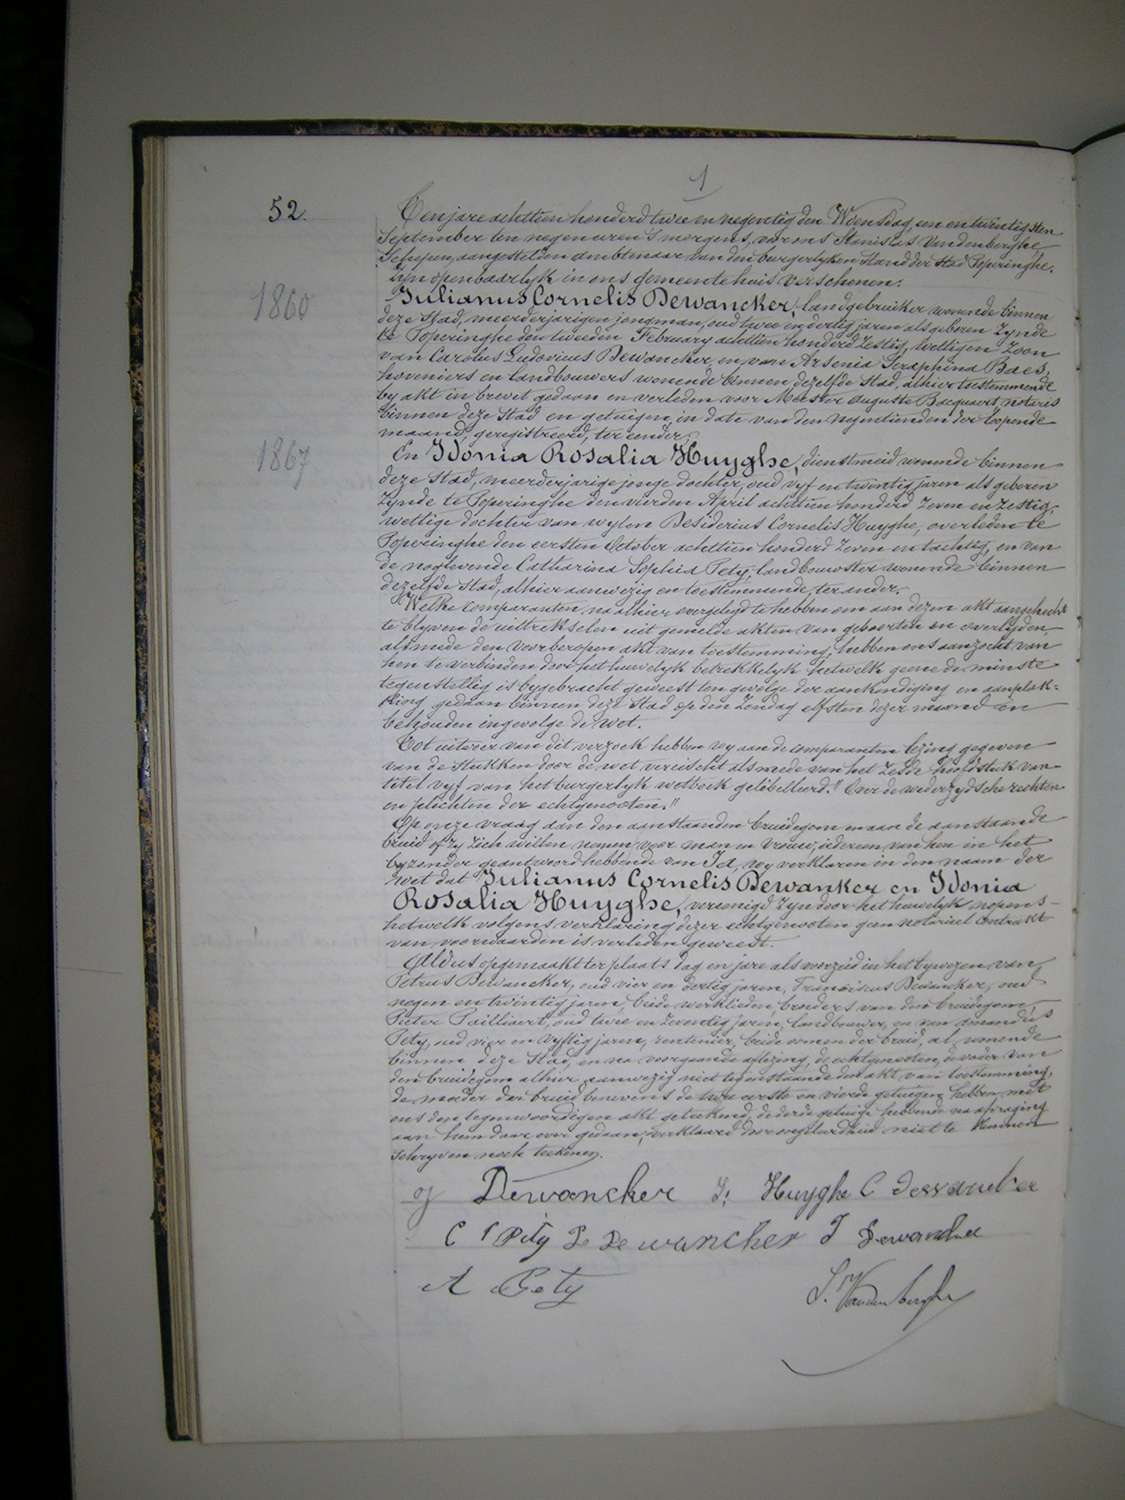 1
52.
Ten jare achttien honderd twee en negentig den Woensdag een en twintigsten
September ten negen uren 's morgens, voor ons Stanislas Vandenberghe,
Schepen, aangestelden ambtenaar van den burgerlyken stand der stad Poperinghe.
zyn openbaarlyk in ons gemeentehuis verschenen.
1860
Julianus Cornelis Dewancker, landgebruiker wonende binnen
deze stad, meerderjarigen jongman, oud twee en dertig jaren als geboren zynde
te Poperinghe den tweeden February achttien honderd zestig, wettigen zoon
van Carolus Ludovicus Dewancker en van Arsenia Seraphina Baes,
hoveniers en landbouwers wonende binnen dezelfde stad, alhier toestemmende
by akt in brevet gedaan en verleden voor Meester Auguste Bacquaert, notaris
binnen deze stad en getuigen, in date van den negentienden der loopende
maand, geregistreerd, ter eender,
1867
En Idonia Rosalia Huyghe, dienstmeid wonende binnen
deze stad, meerderjarige jonge dochter, oud vyf en twintig jaren als geboren
zynde te Poperinghe den vierden April achttien honderd zeven en zestig,
wettige dochter van wylen Desiderius Cornelis Huyghe, overleden te
Poperinghe den eersten October achttien honderd zeven en tachtig, en van
de noglevende Catharina Sophia Pety, landbouwster wonende binnen
dezelfde stad, alhier aanwezig en toestemmende, ter ander.
Welke comparanten, na alhier overgelegd te hebben om aan dezen akt aangehecht
te blyven de uittrekselen uit gemelde akten van geboorten en overlyden,
alsmede den voorberoepen akt van toestemming, hebben ons aanzocht van
hen te verbinden door het huwelyk betrekkelyk hetwelk geene de minste
tegenstellig is bygebracht geweest ten gevolge der aankondiging en aanplak-
king gedaan binnen deze stad op den zondag elfsten dezer maand en
behouden ingevolge de wet.
Tot uiterer van dit verzoek hebben wy aan de comparanten lezing gegeven
van de stukken door de wet vereischt alsmede van het zesde hoofdstuk van
titel vyf van het burgerlyk wetboek gelibelleerd: "Over de wederzydsche rechten
en plichten der echtgenooten."
Op onze vraag aan den aanstaanden bruidegom en aan de aanstaande
bruid of zy zich willen nemen voor man en vrouw, iedereen van hen in het
byzonder geantwoord hebbende van Ja, wy verklaren in den naam der
wet dat Julianus Cornelis Dewanker en Idonia
Rosalia Huyghe, vereenigd zyn door het huwelyk nopens
hetwelk volgens verklaring dezer echtgenooten geen notarieel contrakt
van voorwaarden is verleden geweest.
Aldus opgemaakt ter plaats dag en jare als vorzeid in het bywezen van
Petrus Dewancker, oud vier en dertig jaren, Franciscus Dewancker, oud
negen en twintig jaren, beide werklieden, broeders van den bruidegom,
Pieter Pailliaert, oud twee en zeventig jaren, landbouwer, en van Amandus
Pety, oud vier en vyftig jaren, rentenier, beide oomen der bruid, al wonende
binnen deze stad, en na voorgaande aflezing, de echtgenooten, de vader van
den bruidegom alhier aanwezig niet tegenstaande den akt van toestemming,
de moeder der bruid benevens de twee eerste en vierde getuigen hebben met
ons den tegenwoordigen akt geteekend, de derde getuige hebbende na afvraging
aan hem daar over gedaan, verklaard door ongeleerdheid niet te kunnen
schryven noch teekenen.
Dewancker I. Huyghe C Dewancker
C S Pety P Dewancker F Dewancker
A Pety S. Vandenberghe